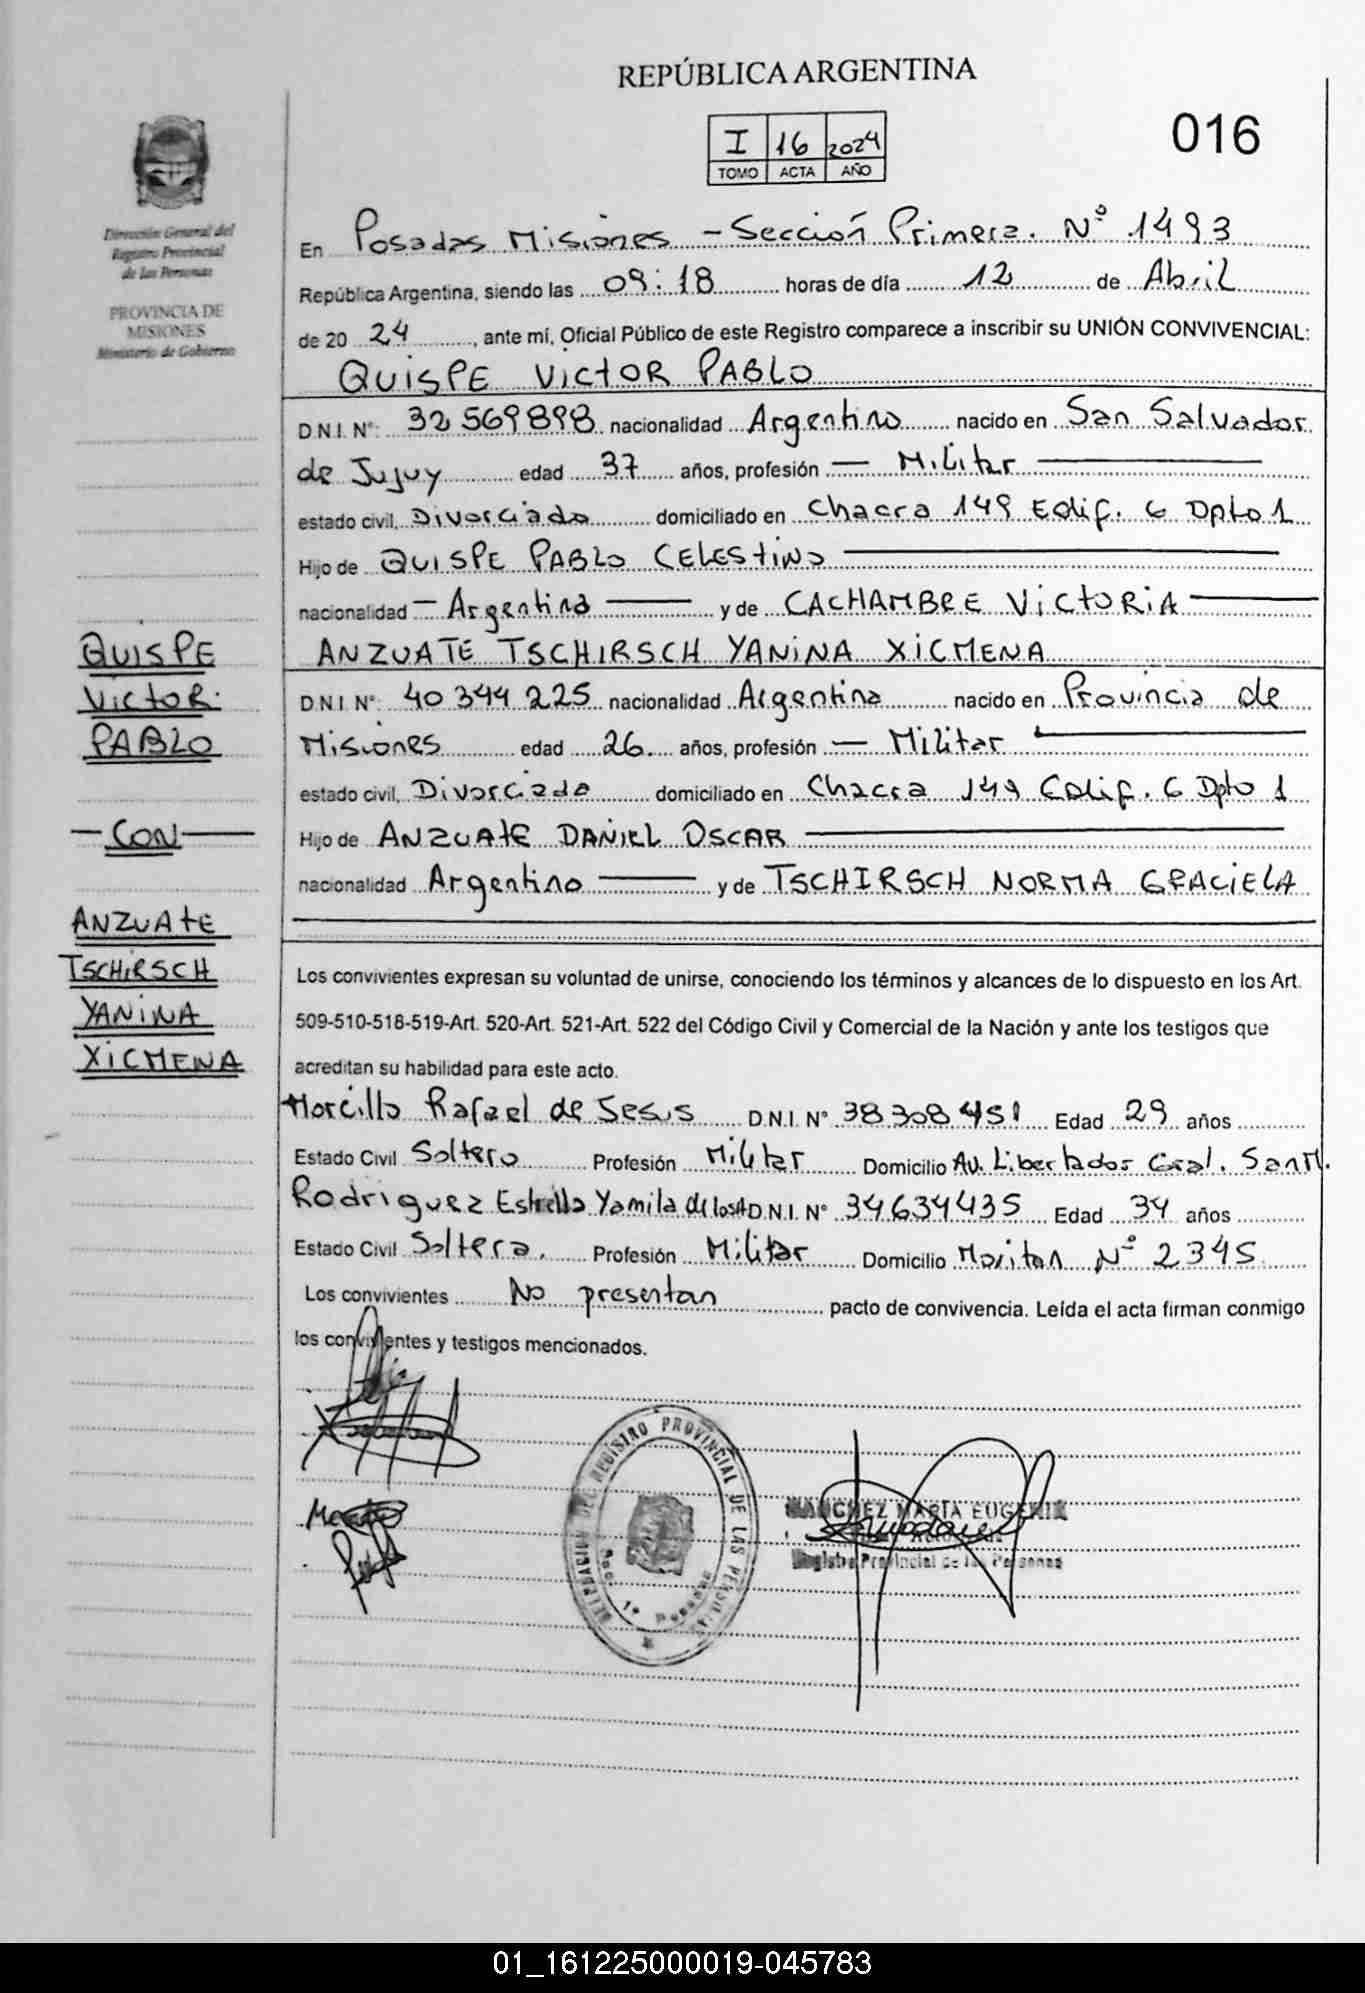 REPÚBLICA ARGENTINA
I 16 2024
TOMO ACTA AÑO
016
Dirección General del
Registro Provincial
de las Personas
PROVINCIA DE
MISIONES
Ministerio de Gobierno
En Posadas Misiones - Sección Primera. Nº 1493
República Argentina, siendo las 09:18 horas de día 12 de Abril
de 20 24, ante mí, Oficial Público de este Registro comparece a inscribir su UNIÓN CONVIVENCIAL:
QUISPE VICTOR PABLO
D.N.I. Nº: 32 569898 nacionalidad Argentino nacido en San Salvador
de Jujuy edad 37 años, profesión — Militar —
estado civil, Divorciado domiciliado en Chacra 149 Edif. 6 Dpto 1
Hijo de QUISPE PABLO CELESTINO —
nacionalidad — Argentina — y de CACHAMBRE VICTORIA —
ANZUATE TSCHIRSCH YANINA XICMENA
D.N.I. Nº: 40 344 225 nacionalidad Argentina nacido en Provincia de
Misiones edad 26 años, profesión — Militar —
estado civil, Divorciada domiciliado en Chacra 149 Edif. 6 Dpto 1
Hijo de ANZUATE DANIEL OSCAR —
nacionalidad Argentino — y de TSCHIRSCH NORMA GRACIELA
QUISPE
VICTOR
PABLO
— CON —
ANZUATE
TSCHIRSCH
YANINA
XICMENA
Los convivientes expresan su voluntad de unirse, conociendo los términos y alcances de lo dispuesto en los Art.
509-510-518-519-Art. 520-Art. 521-Art. 522 del Código Civil y Comercial de la Nación y ante los testigos que
acreditan su habilidad para este acto.
Morcillo Rafael de Jesus D.N.I. Nº 38 308 451 Edad 29 años
Estado Civil Soltero Profesión Militar Domicilio Av. Libertador Gral. SanM.
Rodriguez Estrella Yamila de losA D.N.I. Nº 34634435 Edad 34 años
Estado Civil Soltera. Profesión Militar Domicilio Moritan Nº 2345
Los convivientes No presentan pacto de convivencia. Leída el acta firman conmigo
los convivientes y testigos mencionados.
REGISTRO PROVINCIAL DE LAS PERSONAS
SANCHEZ MARIA EUGENIA
Registro Provincial de las Personas
01_161225000019-045783